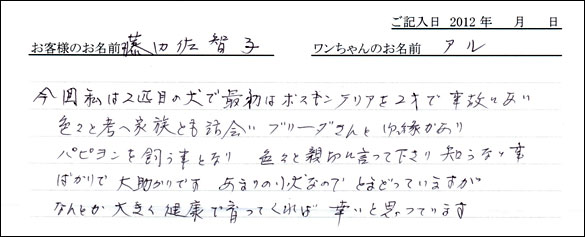 ご記入日 2012年 月 日
お客様のお名前 藤田佐智子 ワンちゃんのお名前 アル
今回私は2匹目の犬で最初はボストンテリアを2才で事故にあい
色々と考へ家族とも話会い ブリーダさんとゆ縁があり
パピヨンを飼う事となり 色々と親切に言って下さり 知らない事
ばかりで大助かりです あまりの小犬なので とまどっていますが
なんとか大きく健康で育ってくれば 幸いと思っています